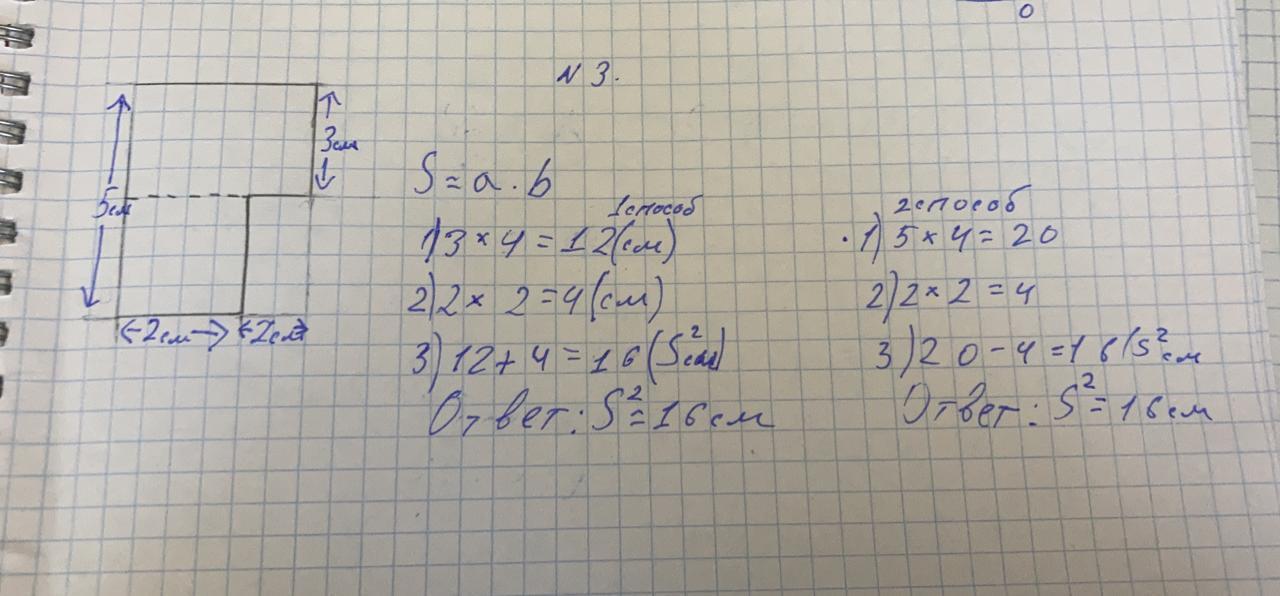 0
N 3.
3см
5см
2см
2см
S = a · b
1 способ
1) 3 × 4 = 12 (см)
2) 2 × 2 = 4 (см)
3) 12 + 4 = 16 (S² см)
Ответ: S² = 16 см
2 способ
1) 5 × 4 = 20
2) 2 × 2 = 4
3) 20 - 4 = 16 (S² см
Ответ: S² = 16 см